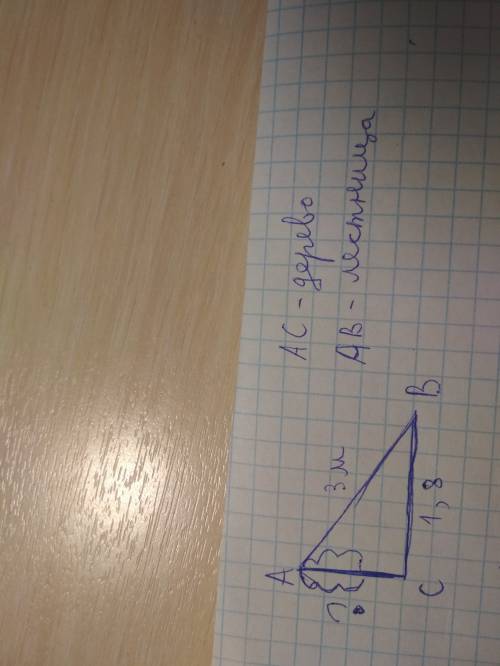 AC - дерево
AB - лестница
A
3 м
?
C
1,8
B